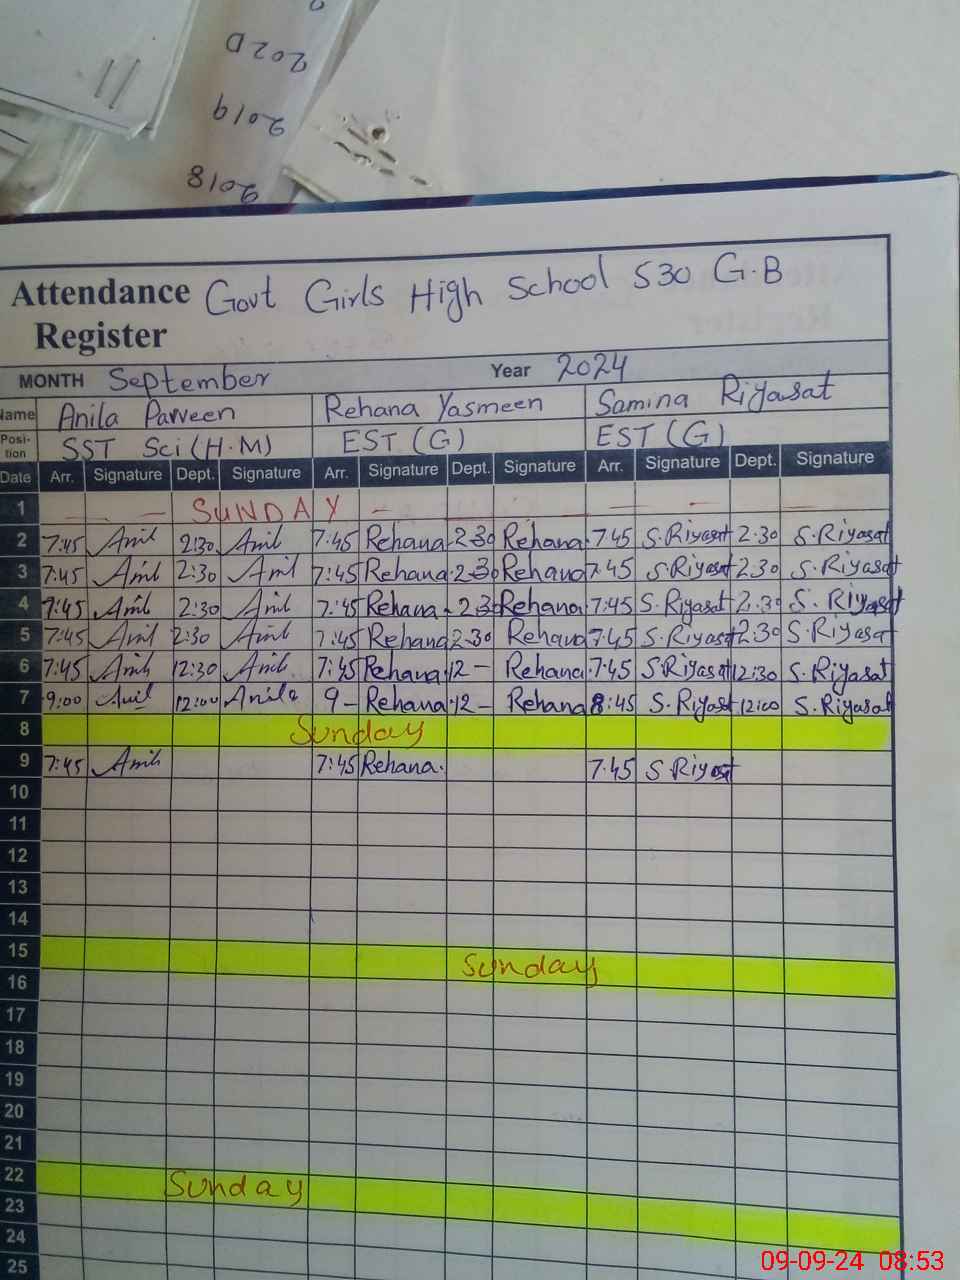 2020
2019
2018
Attendance Register Govt Girls High School 530 G.B
MONTH September Year 2024
Name Anila Parveen Rehana Yasmeen Samina Riyasat
Position SST Sci (H.M) EST (G) EST (G)
Date Arr. Signature Dept. Signature Arr. Signature Dept. Signature Arr. Signature Dept. Signature
1 — — SUNDAY — — — — —
2 7:45 Anil 2:30 Anil 7:45 Rehana 2:30 Rehana 7:45 S.Riyasat 2:30 S.Riyasat
3 7:45 Anil 2:30 Anil 7:45 Rehana 2:30 Rehana 7:45 S.Riyasat 2:30 S.Riyasat
4 7:45 Anil 2:30 Anil 7:45 Rehana 2:30 Rehana 7:45 S.Riyasat 2:30 S.Riyasat
5 7:45 Anil 2:30 Anil 7:45 Rehana 2:30 Rehana 7:45 S.Riyasat 2:30 S.Riyasat
6 7:45 Anil 12:30 Anil 7:45 Rehana 12- Rehana 7:45 S.Riyasat 12:30 S.Riyasat
7 9:00 Anil 12:00 Anila 9- Rehana 12- Rehana 8:45 S.Riyast 12:00 S.Riyasat
8 Sunday
9 7:45 Anil 7:45 Rehana. 7:45 S Riyast
10
11
12
13
14
15 Sunday
16
17
18
19
20
21
22 Sunday
23
24
25
09-09-24 08:53